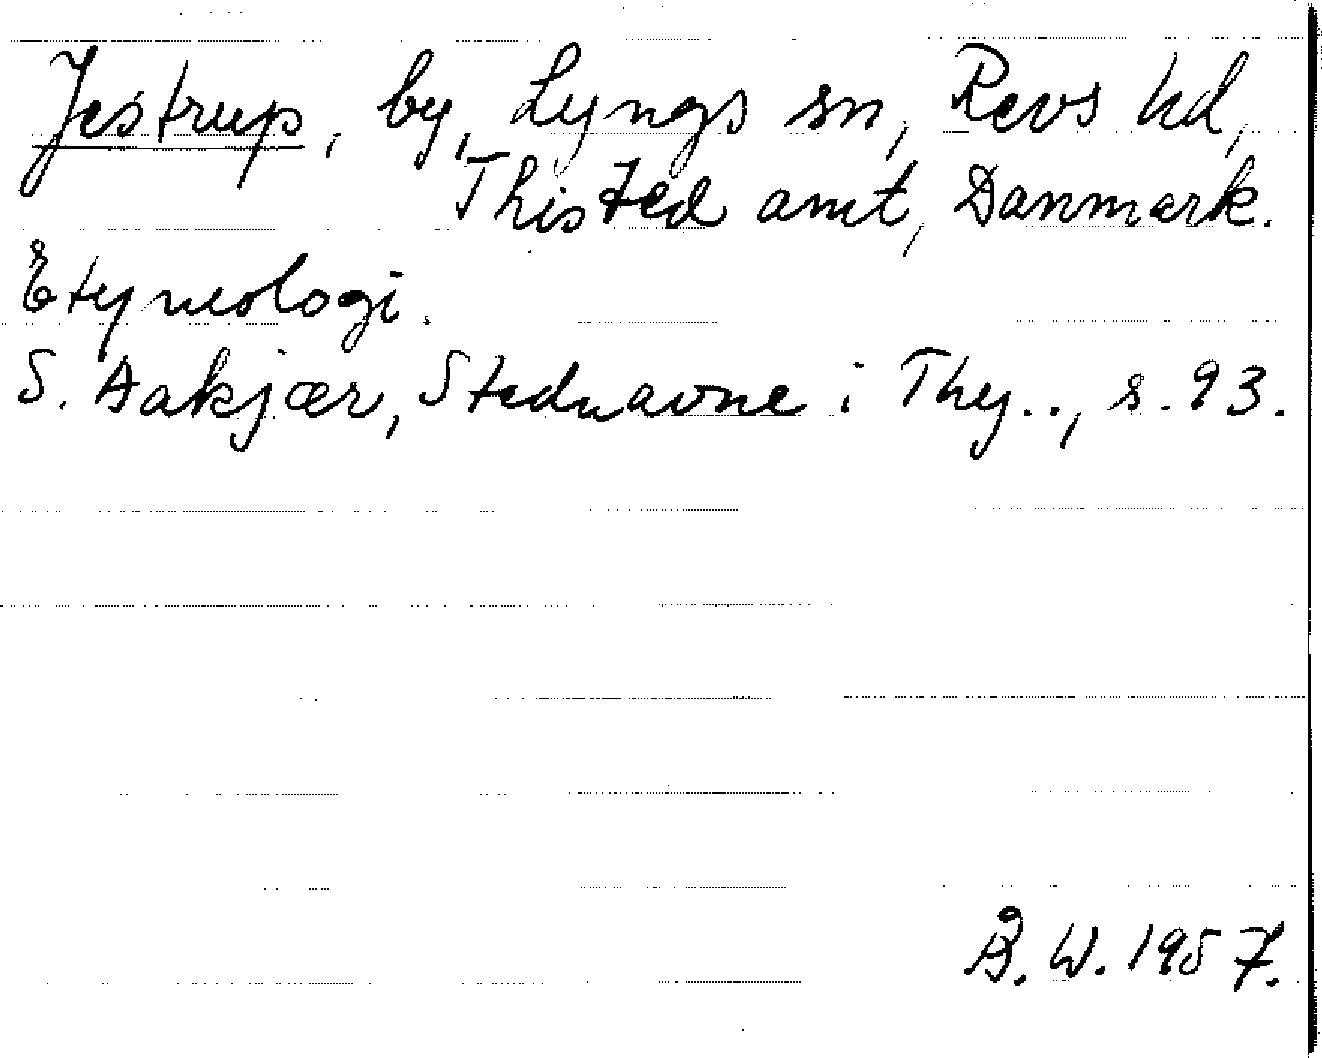 Jestrup, by, Lyngs sn, Revs hd,
Thisted amt, Danmark.
Etymologi.
S. Aakjær, Stednavne i Thy.., s. 93.
Å. W. 1957.